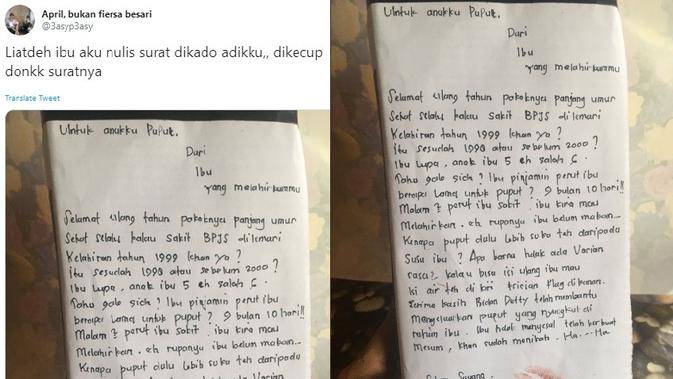 April, bukan fiersa besari
@3asyp3asy
Liatdeh ibu aku nulis surat dikado adikku,, dikecup
donkk suratnya
Translate Tweet
Untuk anakku PuPut.
Dari
Ibu
Yang melahirkanmu
Selamat ulang tahun pokoknya panjang umur
Sehat Selalu kalau Sakit BPJS dilemari
Kelahiran tahun 1999 Khan ya?
Itu sesudah 1998 atau sebelum 2000?
Ibu Lupa, anak ibu 5 eh salah 6.
Tahu gak sich? Ibu pinjamin perut ibu
berapa Lama untuk puput? 9 bulan 10 hari!!
Malam2 perut ibu sakit. ibu kira mau
Melahirkan. eh rupanya ibu belum makan...
Kenapa puput dulu Lebih suka teh daripada
Untuk anakku PuPut.
Dari
Ibu
Yang melahirkanmu
Selamat ulang tahun pokoknya panjang umur
Sehat Selalu kalau Sakit BPJS dilemari
Kelahiran tahun 1999 Khan ya?
Itu sesudah 1998 atau sebelum 2000?
Ibu Lupa, anak ibu 5 eh salah 6.
Tahu gak sich? Ibu pinjamin perut ibu
berapa Lama untuk puput? 9 bulan 10 hari!!
Malam2 perut ibu sakit. ibu kira mau
Melahirkan. eh rupanya ibu belum makan...
Kenapa puput dulu Lebih suka teh daripada
Susu ibu? Apa karna tidak ada Varian
rasa? kalau bisa isi ulang ibu mau
isi air teh di kiri kanan.
Terima kasih Bidan Detty telah membantu
Mengeluarkan puput yang nyangkut di
rahim ibu. Ibu tidak menyesal telah berbuat
Mesum, khan sudah menikah. Ha...Ha
Sayang